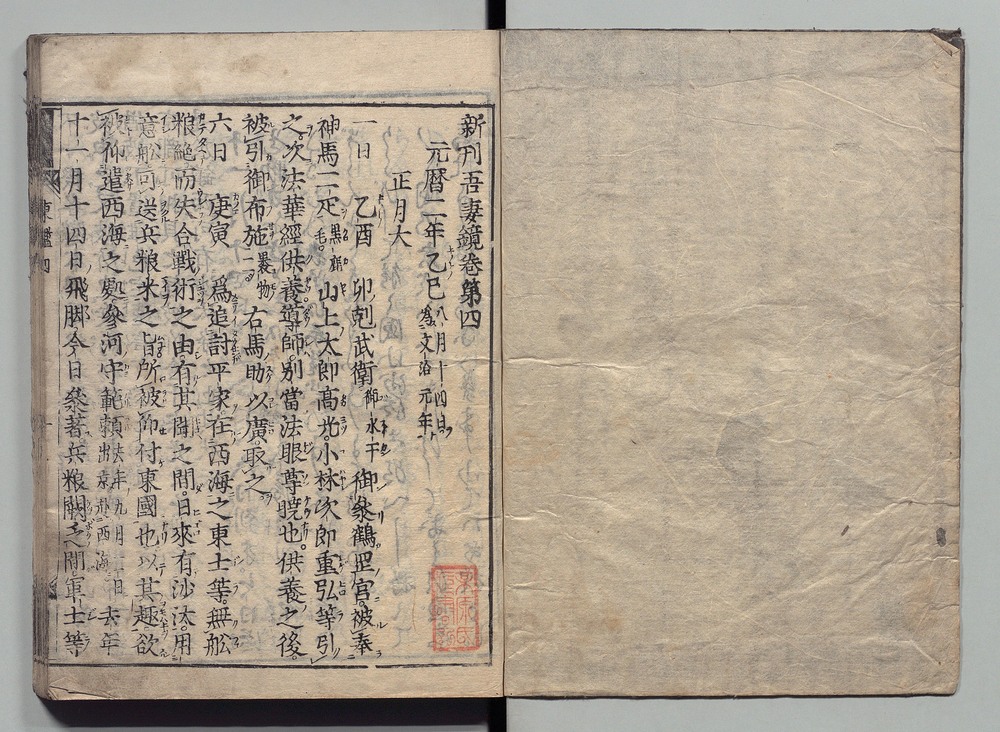 新刊吾妻鏡卷第四
元曆二年乙巳八月十四日爲文治元年
正月大
一日 乙酉 卯剋武衛御水干御參鶴罡宮。被奉
神馬二疋黒鹿毛。山上太郎高光。小林次郎重弘等引
之。次法華經供養導師。別當法眼尊曉也。供養之後。
被引御布施裹物右馬助以廣。取之
六日 庚寅 爲追討平家在西海之東士等。無舩
粮絶而失合戰術之由。有其聞之間。日來有沙汰。用
意舩可送兵粮米之旨。所被仰付東國也。以其趣欲
被仰遣西海之處。參河守範頼去年九月二日出京赴西海去年
十一月十四日飛脚。今日參著。兵粮闕乏間。軍士等
東鑑四